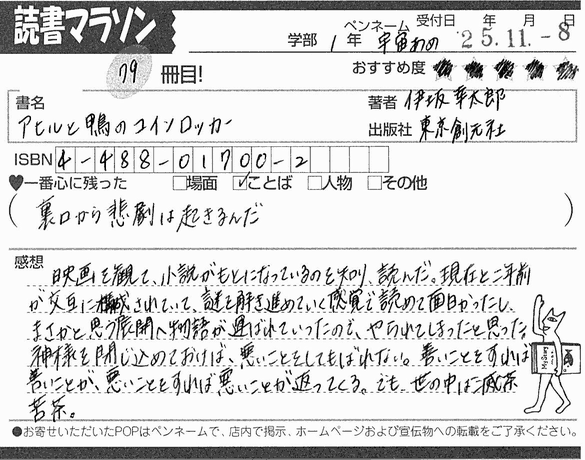 読書マラソン
学部 1年 ペンネーム 宇宙わの 受付日 年 月 日
25.11.-8
79 冊目!
おすすめ度
書名
アヒルと鴨のコインロッカー
著者 伊坂幸太郎
出版社 東京創元社
ISBN 4-488-01700-2
♥一番心に残った □場面 ☑ことば □人物 □その他
(裏口から悲劇は起きるんだ)
感想
映画を観て、小説がもとになっているのを知り、読んだ。現在と二年前
が交互に構成されていて、謎を解き進めていく感覚で読めて面白かったし、
まさかと思う展開へ物語が運ばれていったので、やられてしまったと思った。
神様を閉じ込めておけば、悪いことをしてもばれない。善いことをすれば
善いことが、悪いことをすれば悪いことが返ってくる。でも、世の中は滅茶
苦茶。
●お寄せいただいたPOPはペンネームで、店内で掲示、ホームページおよび宣伝物への転載をご了承ください。